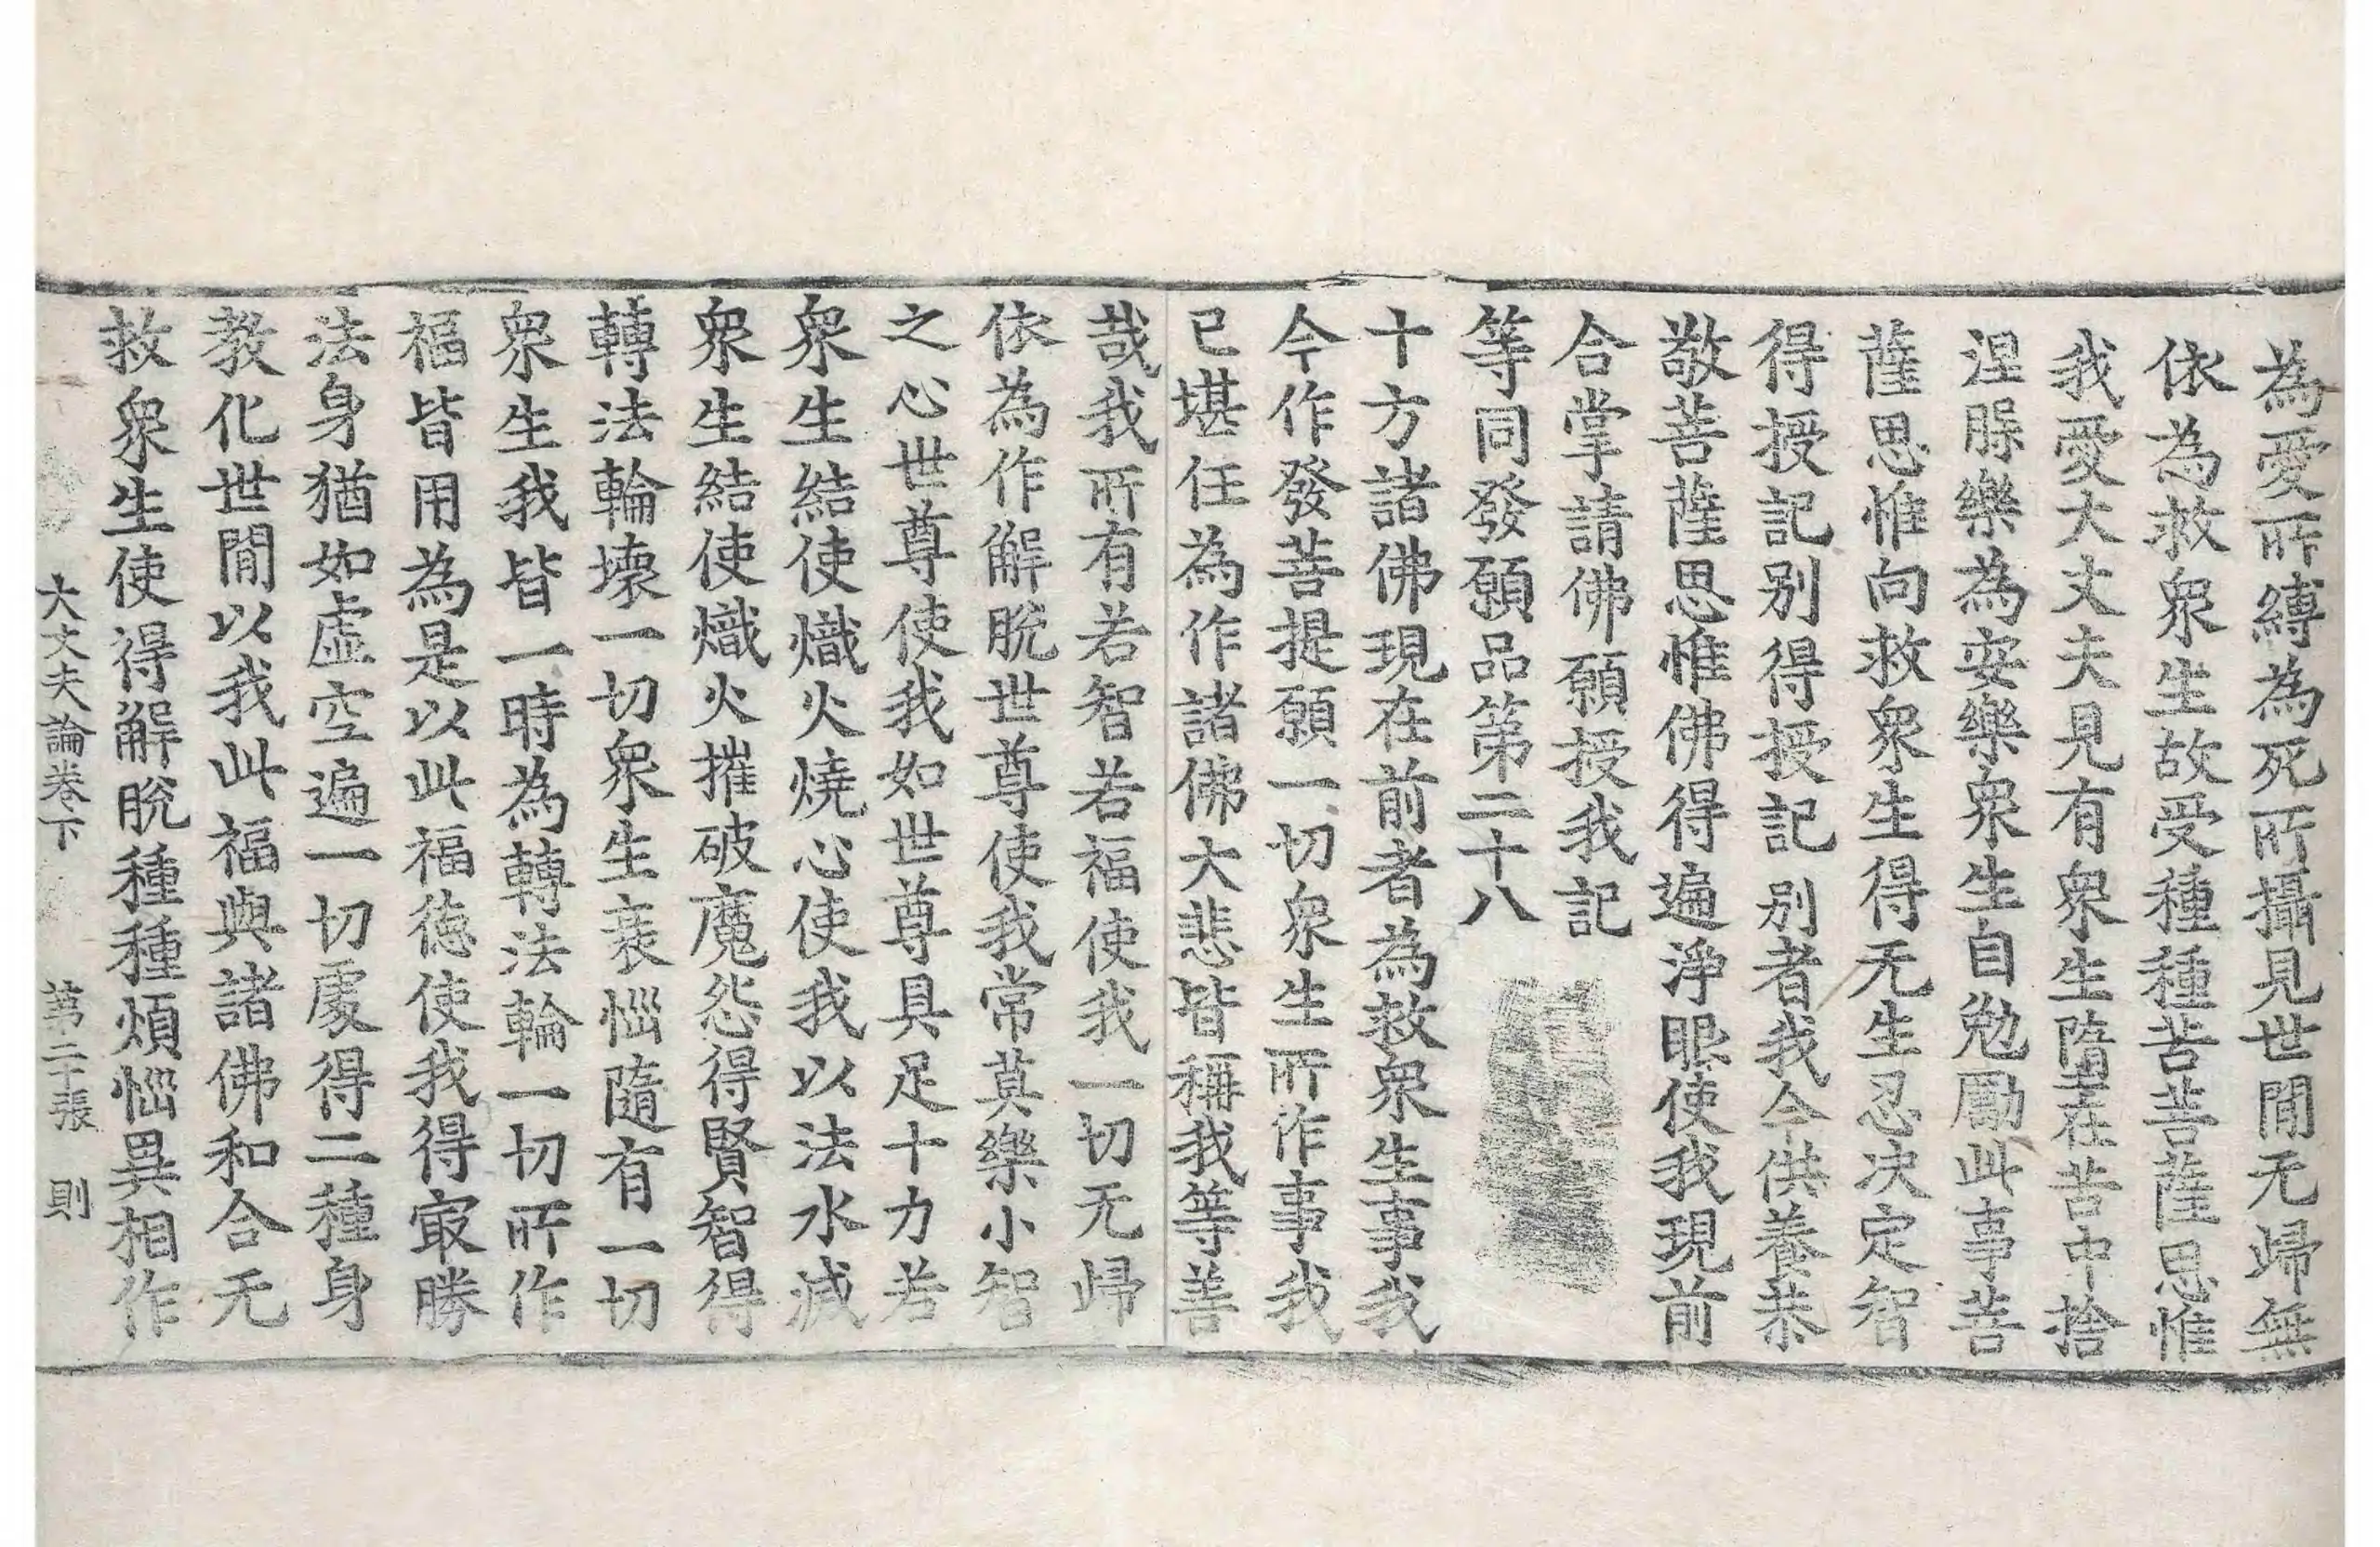 為愛所縛為死所攝見世閒无歸無
依為救衆生故受種種苦菩薩思惟
我愛大丈夫見有衆生墮在苦中捨
涅槃樂為安樂衆生自勉勵此事菩
薩思惟向救衆生得无生忍决定智
得授記别得授記别者我今供養恭
敬菩薩思惟佛得遍淨眼使我現前
合掌請佛願授我記
等同發願品第二十八
十方諸佛現在前者為救衆生事我
今作發菩提願一切衆生所作事我
已堪任為作諸佛大悲皆稱我等善
哉我所有若智若福使我一切无歸
依為作解脫世尊使我常莫樂小智
之心世尊使我如世尊具足十力若
衆生結使熾火燒心使我以法水滅
衆生結使熾火摧破魔怨得賢智得
轉法輪壞一切衆生衰惱隨有一切
衆生我皆一時為轉法輪一切所作
福皆用為是以此福德使我得㝡勝
法身猶如虛空遍一切處得二種身
教化世閒以我此福與諸佛和合无
救衆生使得解脫種種煩惱異相作
大丈夫論卷下　第二十張　則